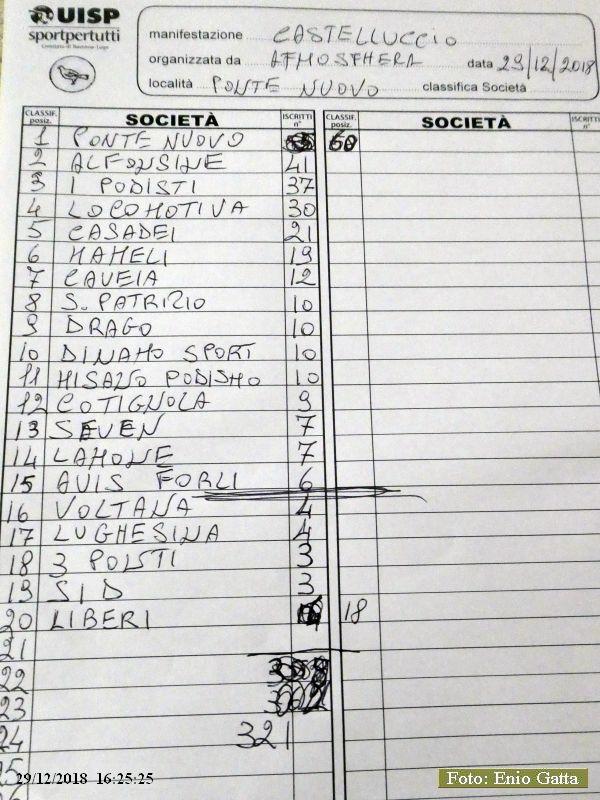 UISP
sportpertutti
manifestazione CASTELLUCCIO
organizzata da ATMOSFHERA data 29/12/2018
località PONTE NUOVO classifica Società
CLASSIF. posiz. SOCIETÀ ISCRITTI n° CLASSIF. posiz. SOCIETÀ ISCRITTI n°
1 PONTE NUOVO 60
2 ALFONSINE 41
3 I PODISTI 37
4 LOCOMOTIVA 30
5 CASADEI 21
6 MAMELI 19
7 CAVEIA 12
8 S. PATRIZIO 10
9 DRAGO 10
10 DINAMO SPORT 10
11 MISANO PODISMO 10
12 COTIGNOLA 9
13 SEVEN 7
14 LAMONE 7
15 AVIS FORLI 6
16 VOLTANA 4
17 LUGHESINA 4
18 3 POISTI 3
19 SID 3
20 LIBERI 18
21
22
23
24 321
25
26
29/12/2018 16:25:25
Foto: Enio Gatta